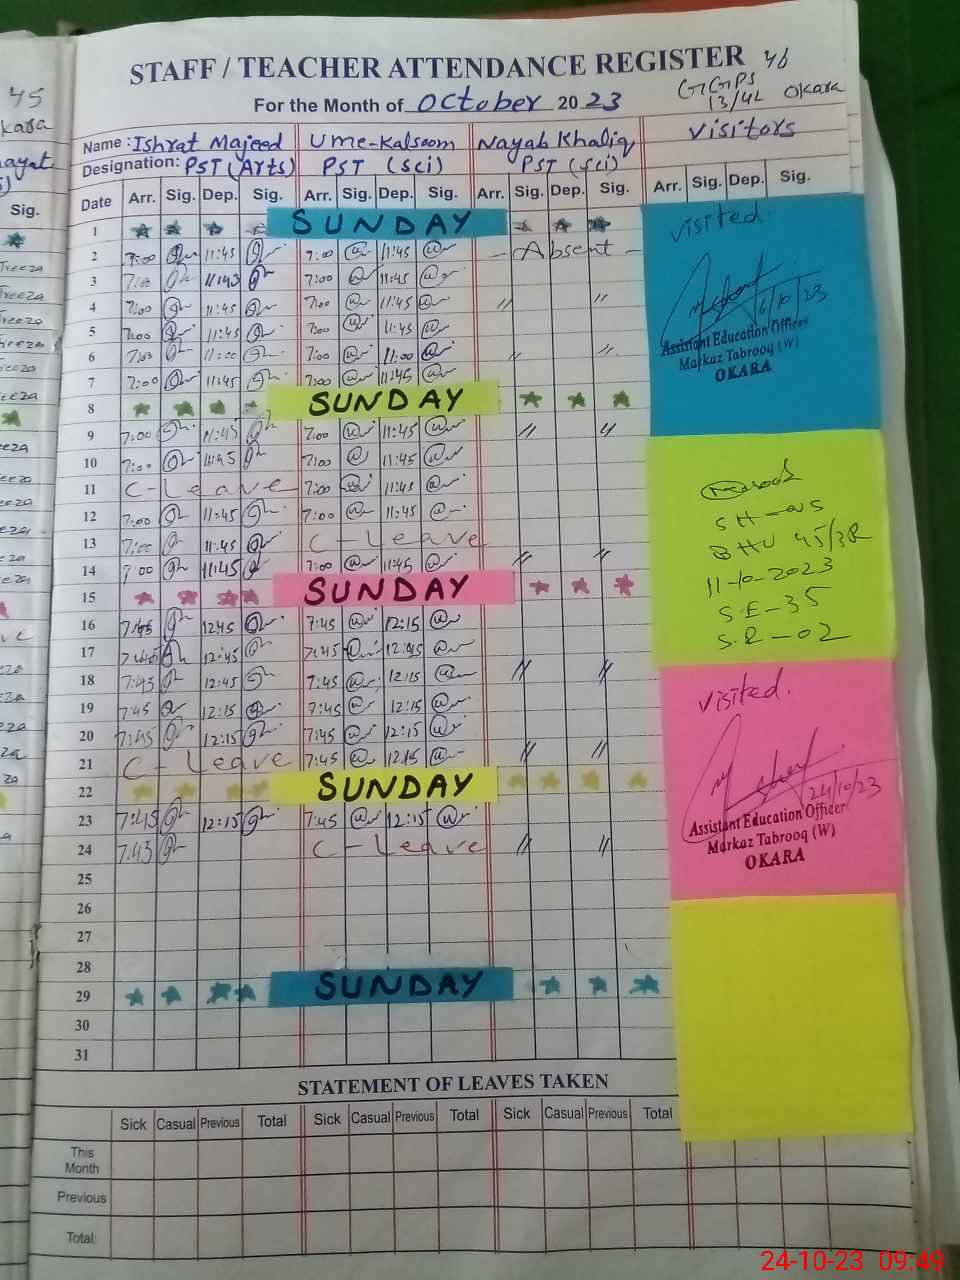 STAFF / TEACHER ATTENDANCE REGISTER 46
For the Month of October 2023 GGPS 13/4L Okara
Name: Ishrat Majeed Ume-Kalsoom Nayab Khaliq Visitors
Designation: PST (Arts) PST (Sci) PST (Sci)
Date Arr. Sig. Dep. Sig. Arr. Sig. Dep. Sig. Arr. Sig. Dep. Sig. Arr. Sig. Dep. Sig.
1 SUNDAY
2 7:00 11:45 7:00 11:45 - Absent -
3 7:00 11:45 7:00 11:45
4 7:00 11:45 7:00 11:45 〃 〃
5 7:00 11:45 7:00 11:45
6 7:00 11:00 7:00 11:00 〃 〃
7 7:00 11:45 7:00 11:45
8 SUNDAY
9 7:00 11:45 7:00 11:45 〃 〃
10 7:00 11:45 7:00 11:45
11 C-Leave 7:00 11:45
12 7:00 11:45 7:00 11:45
13 7:00 11:45 C-Leave
14 7:00 11:45 7:00 11:45 〃 〃
15 SUNDAY
16 7:45 12:45 7:45 12:15
17 7:45 12:45 7:45
18 7:45 12:45 7:45 12:15 〃 〃
19 7:45 12:15 7:45 12:15
20 7:45 12:15 7:45 12:15
21 C-Leave 7:45 12:15 〃 〃
22 SUNDAY
23 7:45 12:15 7:45 12:15
24 7:43 C-Leave 〃 〃
25
26
27
28
29 SUNDAY
30
31
visited.
6/10/23
Assistant Education Officer
Markaz Tabrooq (W)
OKARA
SH-NS
BHU 45/3R
11-10-2023
S.E-35
S.R-02
visited.
24/10/23
Assistant Education Officer
Markaz Tabrooq (W)
OKARA
STATEMENT OF LEAVES TAKEN
Sick Casual Previous Total Sick Casual Previous Total Sick Casual Previous Total
This Month
Previous
Total:
45
Sig.
24-10-23 09:49